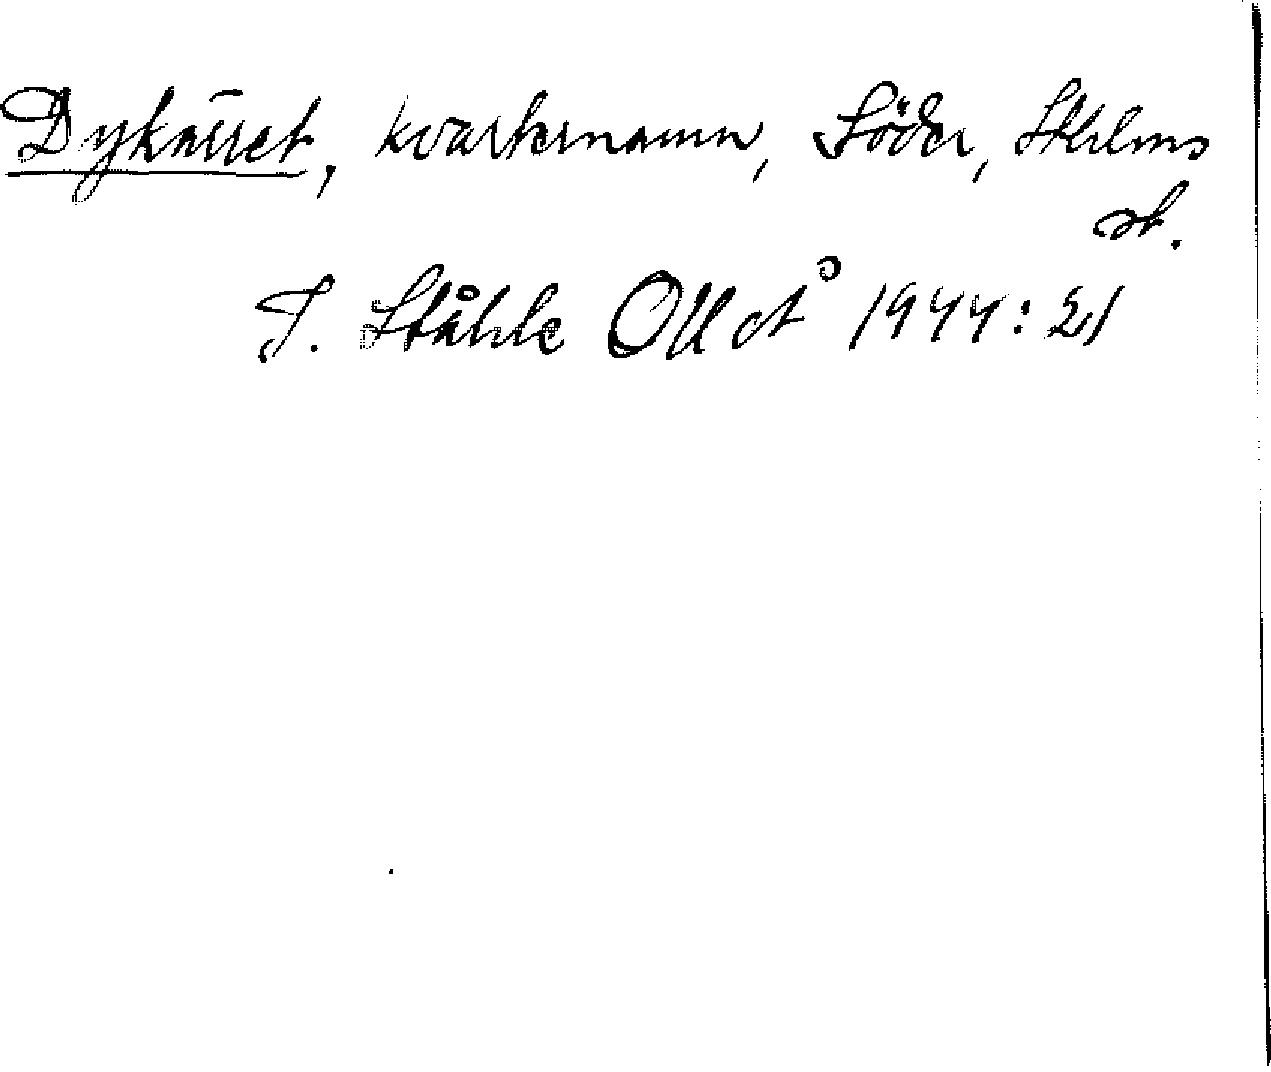 Dykärret, kvartersnamn, Söder, Sthlms
st.
I. Ståhle OUot° 1944: 21